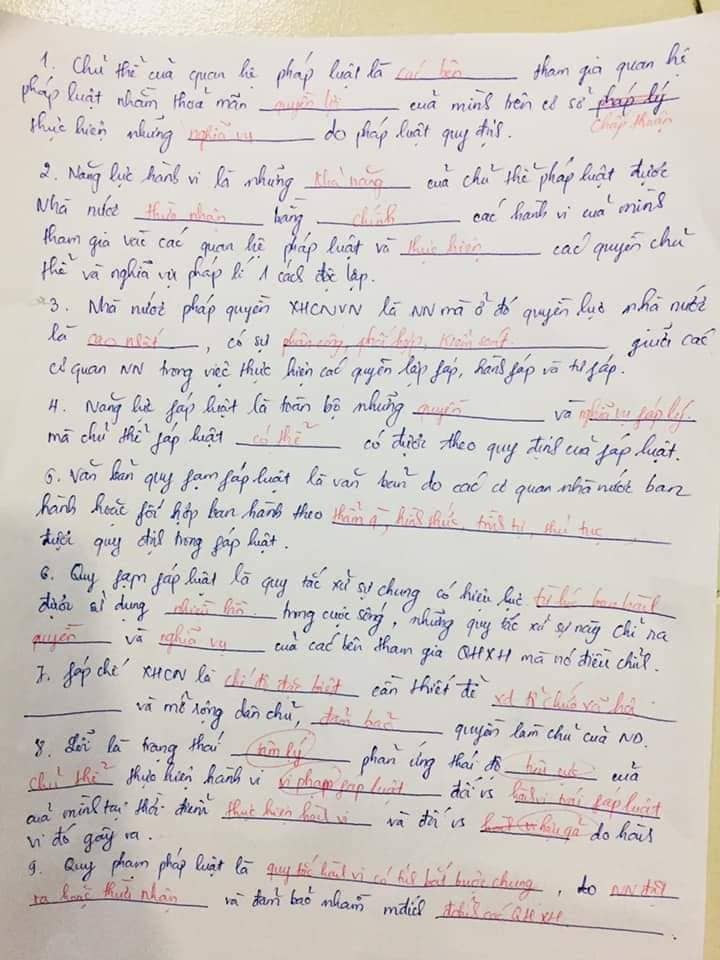 1. Chủ thể của quan hệ pháp luật là các bên tham gia quan hệ
pháp luật nhằm thoả mãn quyền lợi của mình trên cơ sở pháp lý
chấp thuận
thực hiện những nghĩa vụ do pháp luật quy định.
2. Năng lực hành vi là những khả năng của chủ thể pháp luật được
Nhà nước thừa nhận bằng chính các hành vi của mình
tham gia vào các quan hệ pháp luật và thực hiện các quyền chủ
thể và nghĩa vụ pháp lí 1 cách độc lập.
3. Nhà nước pháp quyền XHCNVN là NN mà ở đó quyền lực nhà nước
là cao nhất, có sự phân công, phối hợp, kiểm soát giữa các
cơ quan NN trong việc thực hiện các quyền lập fáp, hành fáp và tư fáp.
4. Năng lực fáp luật là toàn bộ những quyền và nghĩa vụ fáp lý
mà chủ thể fáp luật có thể có được theo quy định của fáp luật.
5. Văn bản quy fạm fáp luật là văn bản do các cơ quan nhà nước ban
hành hoặc fối hợp ban hành theo thẩm q`, hình thức, trình tự, thủ tục
được quy định trong fáp luật.
6. Quy fạm fáp luật là quy tắc xử sự chung có hiệu lực
được sử dụng nhiều lần trong cuộc sống, những quy tắc xử sự này chỉ ra
quyền và nghĩa vụ của các bên tham gia QHXH mà nó điều chỉnh.
7. fáp chế XHCN là chế độ đặc biệt cần thiết để xd tổ chức xã hội
và mở rộng dân chủ, đảm bảo quyền làm chủ của ND.
8. Lỗi là trạng thái tâm lý phản ứng thái độ tiêu cực của
chủ thể thực hiện hành vi vi phạm fáp luật đối vs hành vi trái fáp luật
của mình tại thời điểm thực hiện hành vi và đối vs hậu quả do hành
vi đó gây ra.
9. Quy phạm pháp luật là quy tắc hành vi có tính bắt buộc chung, do NN đặt
ra hoặc thừa nhận và đảm bảo nhằm mđích đchỉnh các QHXH